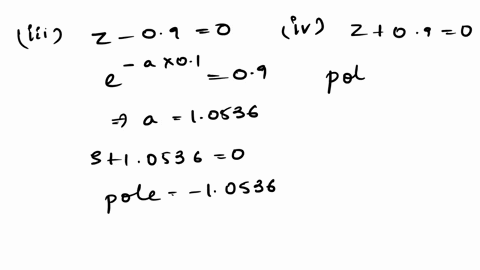 (iii) z - 0.9 = 0
e^{-a×0.1} = 0.9
⇒ a = 1.0536
s+1.0536 = 0
pole = -1.0536
(iv) z + 0.9 = 0
pol